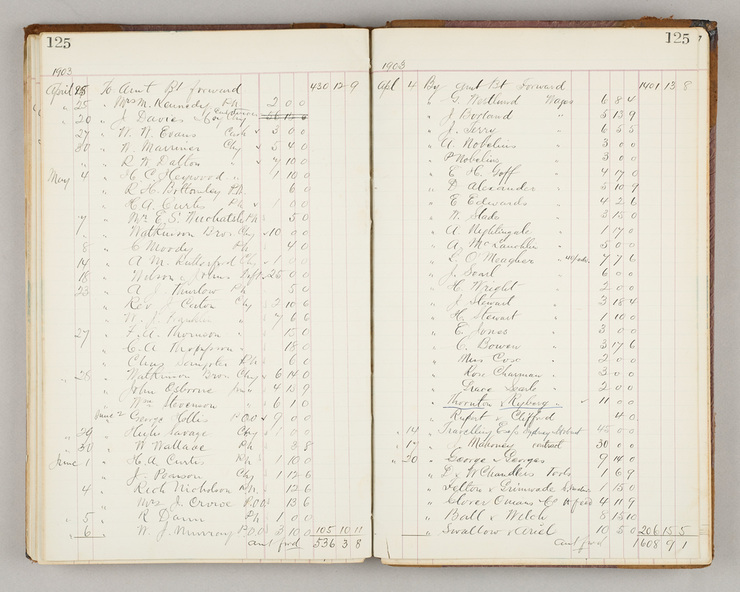 125
1903
April 25 To Amt Bt forward 430 12 9
" 25 " Mrs M. Kennedy Ph 2 0 0
" 20 " J. Davies
" 27 " W. N. Evans Cash 3 0 0
" 30 " W. Marriner Chq 5 4 0
" " " R W Dalton " 7 10 0
May 4 " H C Heywood " 1 10 0
" R H Bottomley P.N. 6 0
" H A. Curtis Ph 1 0 0
7 " Mr E. S. Ph 5 0
" " Watkinson Bros Chq 10 0 0
8 " C Moody Ph 4 0
14 " A M Rutherford Chq 1 0 0
18 " Wilson 25 0 0
23 " A J Ph 5 0
" Rev J Chq 2 10 6
" W. J. " 7 6 0
27 " F. A. Thomson " 15 0
" C. A. Thompson " 18 0
" Chas Douglas Ph 6 0
" 28 " Watkinson Bros Chq 6 14 0
" John Osborne 4 13 9
" Wm Stevenson 6 1 0
June 2 George Hollis P.O.O 9 0 0
" 29 " Hugh Savage Chq 1 0 0
" 30 " W Wallace Ph 3 8
June 1 " H. A. Curtis Ph 1 10 0
" J. Ponson Chq 1 12 6
4 " Rich Nicholson 12 6
" Mrs J. P.O.O. 13 6
" 5 " R Dann Ph 1 0 0
" 6 " W. J. Murray P.O.O 3 10 0 105 10 11
amt fwd 536 3 8
125
1903
Apl 4 By Amt Bt Forward 1401 13 8
" G. Wages 6 8 4
" J Borland " 5 13 9
" J. Terry " 6 5 5
" A. Nobelius " 3 0 0
" P Nobelius " 3 0 0
" E H. Goff " 4 17 0
" D Alexander " 5 10 9
" E Edwards " 4 2 6
" N. Slade " 3 15 0
" A Nightingale " 1 17 0
" A. McLaughlin " 5 0 0
" L O'Meagher " 7 7 6
" J. Searl " 6 0 0
" H Wright " 2 0 0
" J. Stewart " 3 18 4
" H. Stewart " 1 10 0
" E. Jones " 3 0 0
" C. Bowen " 3 17 6
" Miss Cose " 2 0 0
" Ron Chapman " 3 0 0
" Grace Searle " 2 0 0
" Thornton & 11 0 0
" Rupert & Clifford 4 0
" 14 " Travelling Exps 45 0 0
" 17 " J. Mahoney contract 30 0 0
" 20 " George & George 9 14 0
" L & W Chandler Tools 1 6 9
" Felton & Grimwade 1 15 0
" Glover Onians & Co 4 11 9
" Ball & Welch 8 15 10
" Swallow & Ariel 10 5 0 206 15 5
amt fwd 1608 9 1